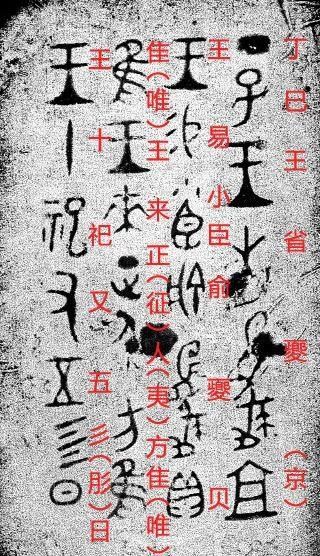 丁巳王省夔(京)
王易小臣俞夔贝
隹(唯)王来正(征)人(夷)方隹(唯)
王十祀又五彡(肜)日